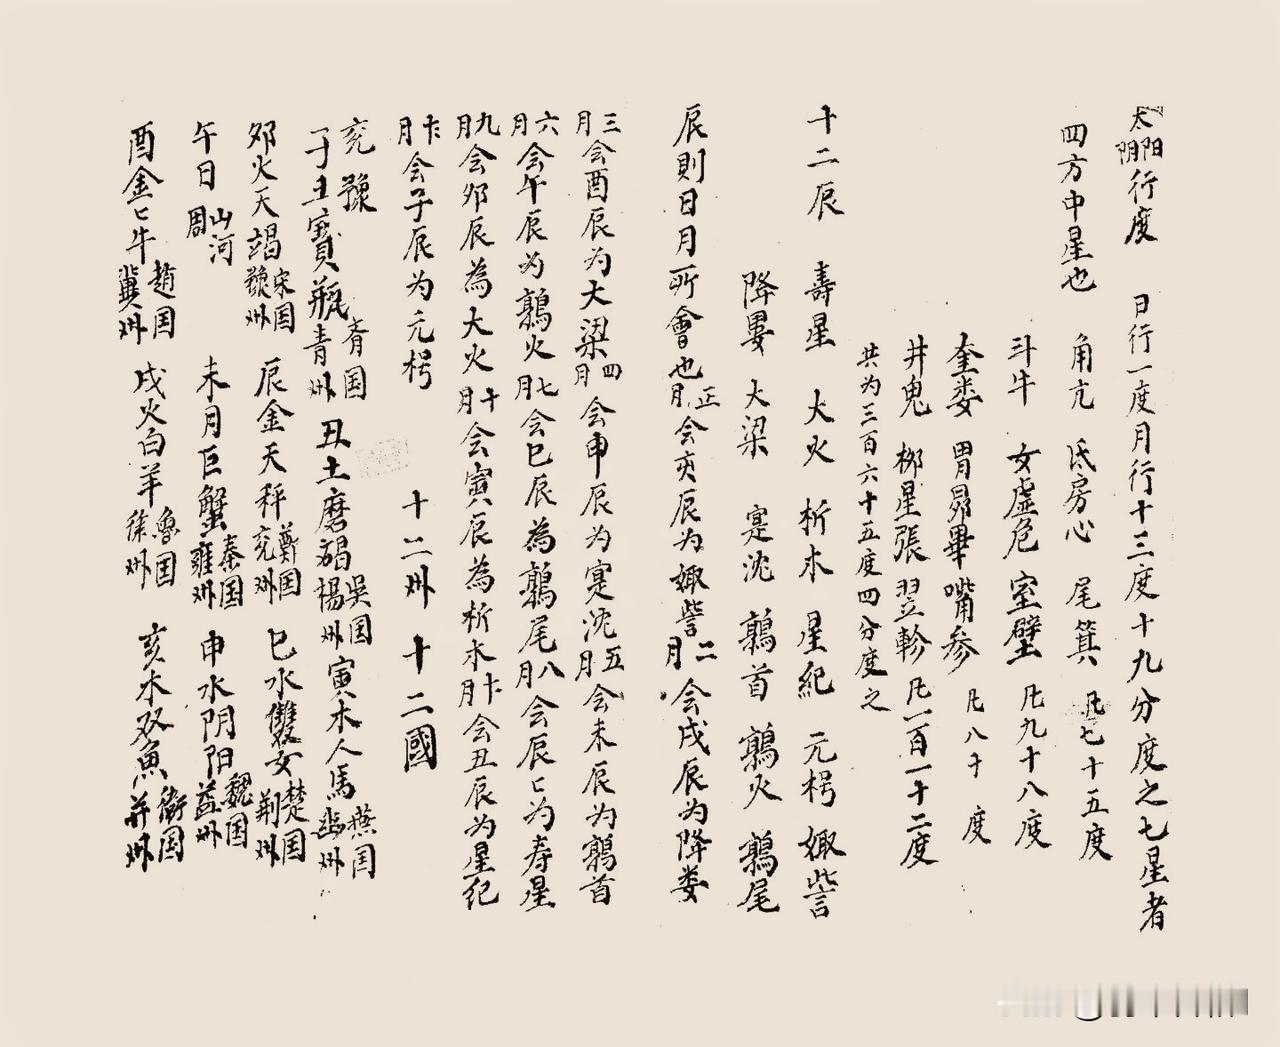 太陽太阴行度 日行一度月行十三度十九分度之七星者
四方中星也 角亢氐房心 尾箕 凡七十五度
斗牛 女虚危室壁 凡九十八度
奎娄 胃昴畢嘴参 凡八十度
井鬼 柳星張翌軫 凡一百一十二度
共为三百六十五度四分度之
十二辰 壽星 大火 析木 星紀 元枵 娵訾
降婁 大梁 寔沈 鶉首 鶉火 鶉尾
辰則日月所會也正月会亥辰为娵訾二月会戌辰为降娄
三月会酉辰为大梁四月会申辰为寔沈五月会未辰为鶉首
六月会午辰为鶉火七月会巳辰為鶉尾八月会辰辰为寿星
九月会夘辰為大火十月会寅辰為析木十一月会丑辰为星紀
十二月会子辰为元枵 十二州 十二國
兖 豫
子土寳瓶青州齐国 丑土磨羯楊州吳国 寅木人馬幽州燕国
夘火天蝎豫州宋国 辰金天秤兖州鄭国 巳水雙女荆州楚国
午日 周山河 未月巨蟹雍州秦国 申水阴阳益州魏国
酉金亡牛冀州趙国 戌火白羊徐州魯国 亥木双魚并州衛国